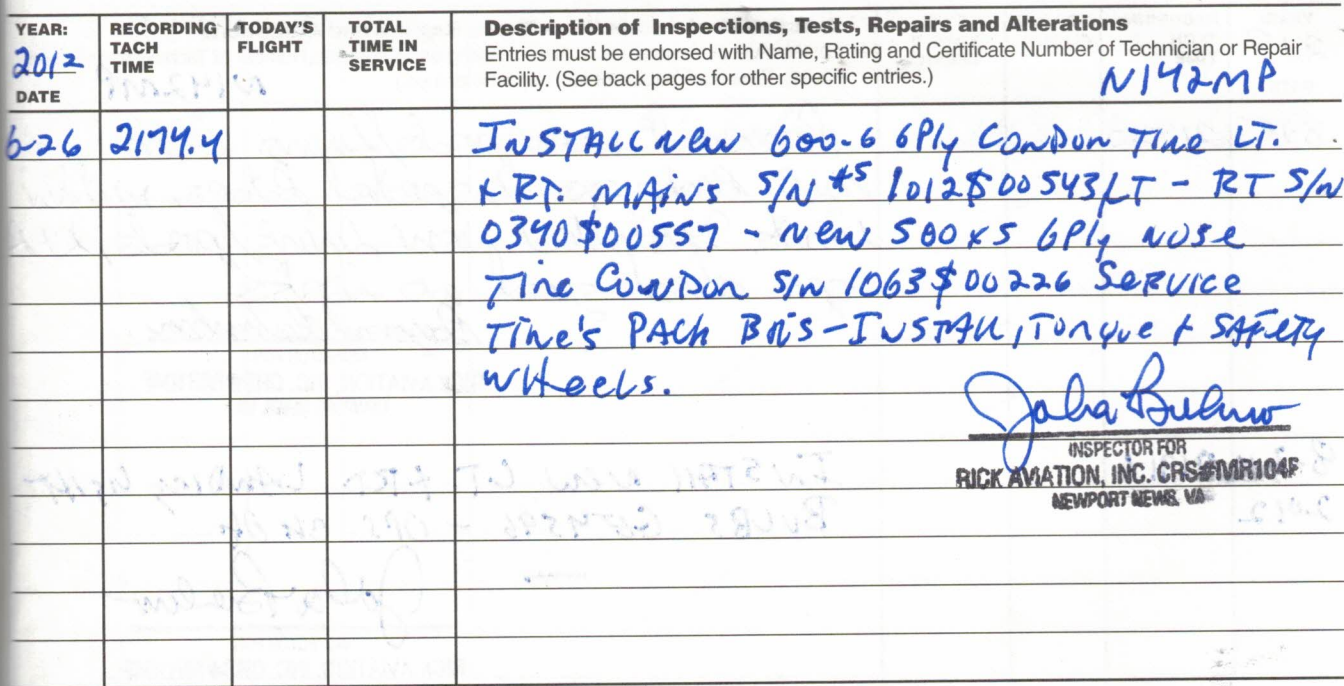 YEAR: RECORDING TODAY'S TOTAL Description of Inspections, Tests, Repairs and Alterations
2012 TACH FLIGHT TIME IN Entries must be endorsed with Name, Rating and Certificate Number of Technician or Repair
DATE TIME SERVICE Facility. (See back pages for other specific entries.) N142MP
6-26 2174.4 INSTALL NEW 600-6 6Ply Condon Tire LT.
+ RT. MAINS S/N #s 1012$00543 LT - RT S/N
0340$00557 - New 500x5 6Ply NOSE
Tire Condon S/N 1063$00226 Service
Tire's PACK BRGS - INSTALL, Torque + SAFETY
WHeels.
INSPECTOR FOR
RICK AVIATION, INC. CRS#MR104F
NEWPORT NEWS, VA